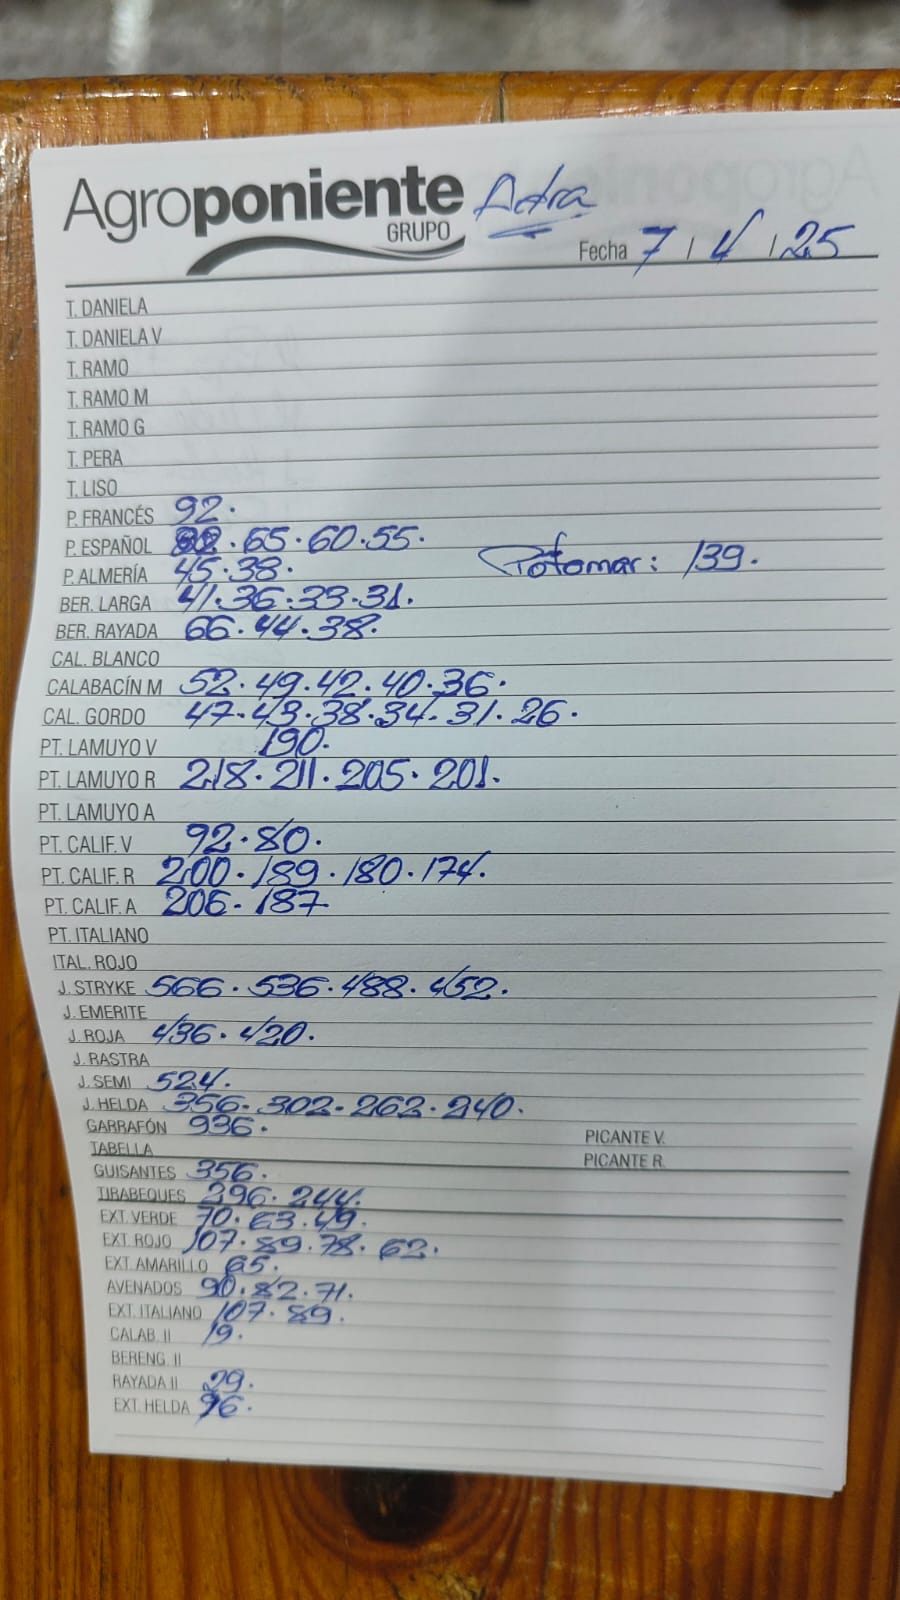 Agroponiente Adra
GRUPO
Fecha 7 / 4 / 25
T. DANIELA
T. DANIELA V
T. RAMO
T. RAMO M
T. RAMO G
T. PERA
T. LISO
P. FRANCÉS 92.
P. ESPAÑOL · 65 · 60 · 55.
Potomar: 139.
P. ALMERÍA 45 · 38.
BER. LARGA 41 · 36 · 33 · 31.
BER. RAYADA 66 · 44 · 38.
CAL. BLANCO
CALABACÍN M 52 · 49 · 42 · 40 · 36.
CAL. GORDO 47 · 43 · 38 · 34 · 31 · 26.
PT. LAMUYO V 190.
PT. LAMUYO R 218 · 211 · 205 · 201.
PT. LAMUYO A
PT. CALIF. V 92 · 80.
PT. CALIF. R 200 · 189 · 180 · 174.
PT. CALIF. A 206 · 187
PT. ITALIANO
ITAL. ROJO
J. STRYKE 566 · 536 · 488 · 452.
J. EMERITE
J. ROJA 436 · 420.
J. RASTRA
J. SEMI 524.
J. HELDA 356 · 302 - 262 · 240.
GARRAFÓN 936.
PICANTE V.
TABELLA
PICANTE R.
GUISANTES 356.
TIRABEQUES 296 · 244.
EXT. VERDE 70 · 63 · 49.
EXT. ROJO 107 · 89 · 78 · 62.
EXT. AMARILLO 65.
AVENADOS 90 · 82 · 71.
EXT. ITALIANO 107 · 89.
CALAB. II 19.
BERENG. II
RAYADA II 29.
EXT. HELDA 96.